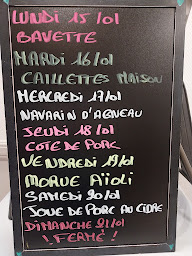 LUNDI 15/01
BAVETTE
MARDI 16/01
CAILLETTES MAISON
MERCREDI 17/01
NAVARIN D'AGNEAU
JEUDI 18/01
COTE DE PORK
VENDREDI 19/01
MORUE AÏOLI
SAMEDI 20/01
JOUE DE PORC AU CIDRE
DIMANCHE 21/01
! FERMÉ !